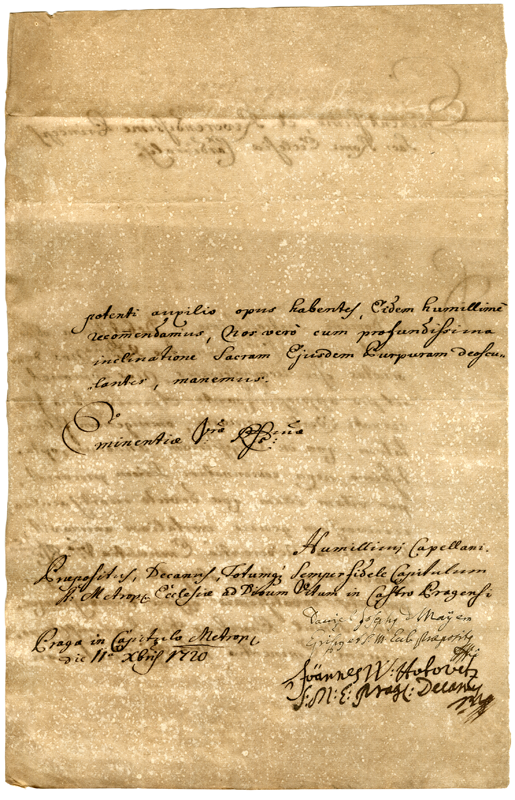 potenti auxilio opus habentes, Eidem humillimè
recom̄endamus, Nos verò cum profundissima
inclinatione Sacram Ejusdem Purpuram deoscu-
lantes, manemus.
Eminentiæ Vrã
Humillimi Capellani.
Præpositus, Decanus, Totumq; Semper fidele Capitulum
S: Metrop: Ecclesiæ ad Divum Vitum in Castro Pragensi
Daniel Joseph de Mayern
Præposity
Praga in Capitulo Metrop:
die 11 Xbris 1720
Joannes W:
S: M: E: Prag: Decany